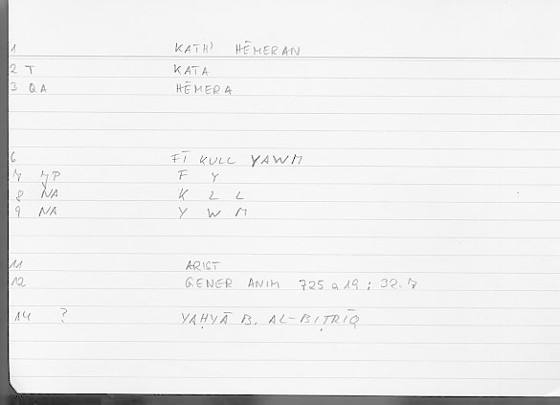 1 KATH' HĒMERAN
2 T KATA
3 QA HĒMERA
6 FĪ KULL YAWM
7 JP F Y
8 NA K L L
9 NA Y W M
11 ARIST
12 GENER ANIM 725 a 19 ; 32.7
14 ? YAḤYĀ B. AL-BIṬRĪQ